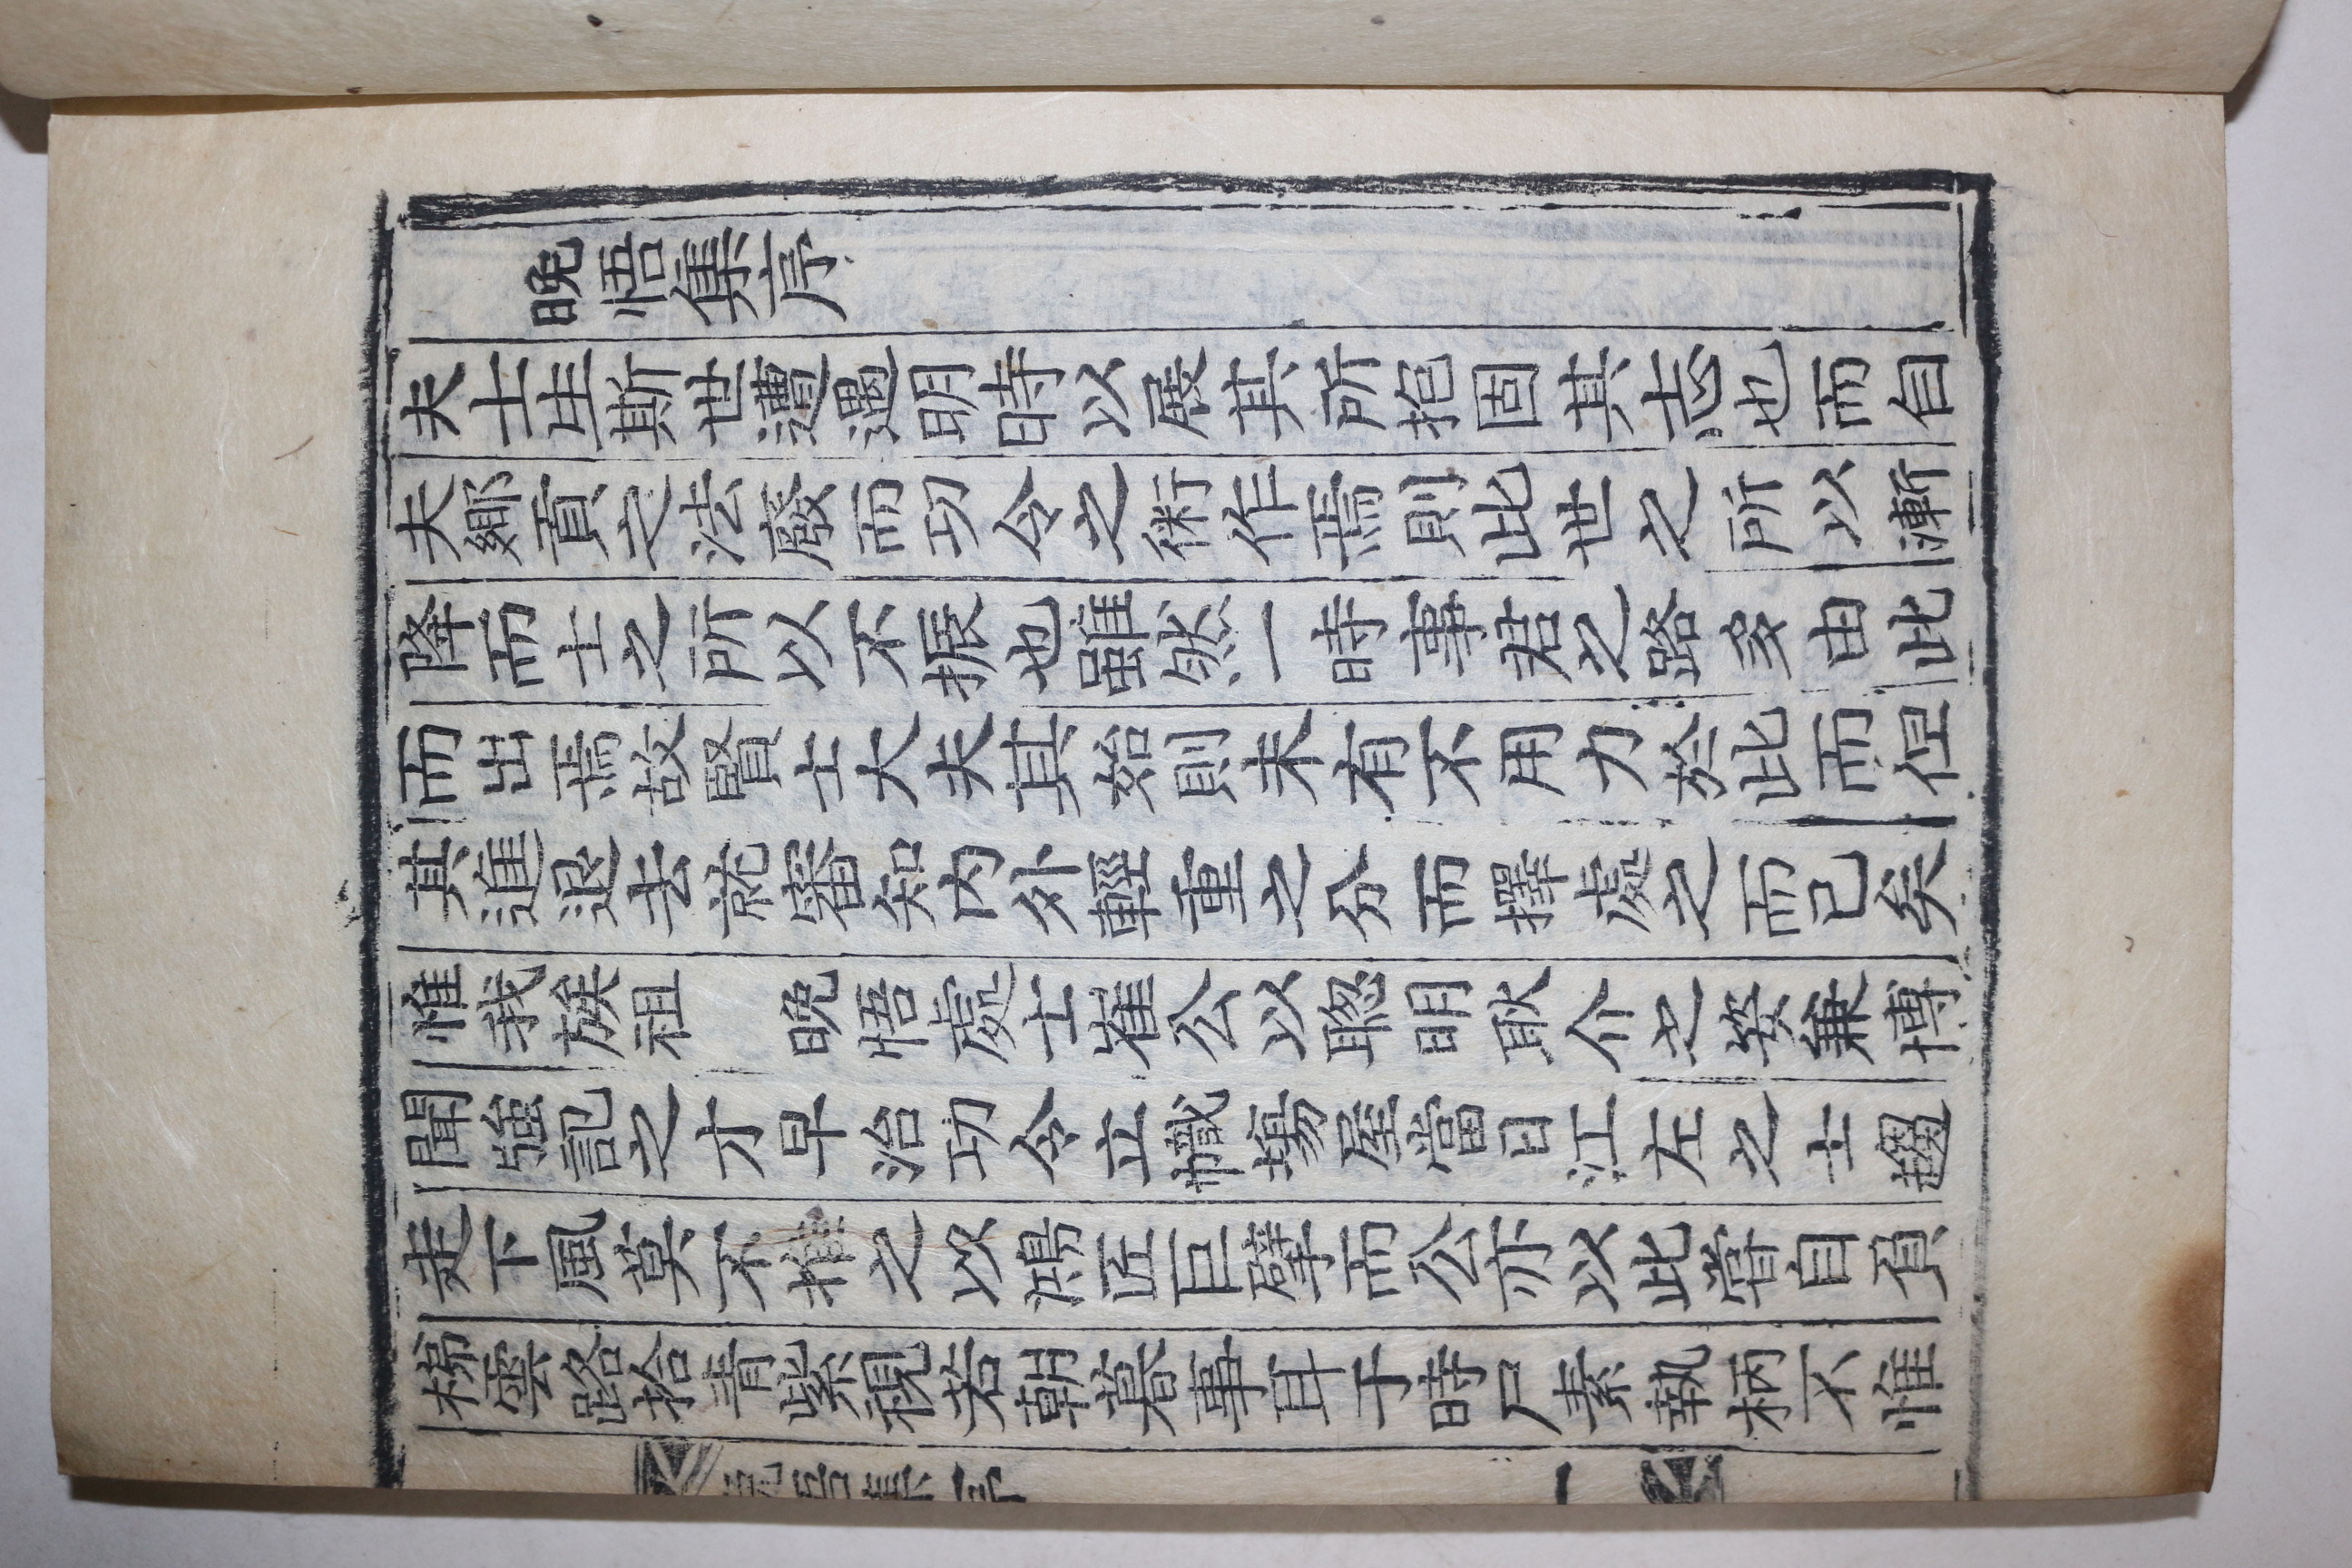 晩悟集序
夫士生斯世遭遇明時以展其所抱固其志也而自
夫鄕貢之法廢而功令之術作焉則此世之所以漸
降而士之所以不振也雖然一時事君之路多由此
而出焉故賢士大夫其始則未有不用力於此而但
其進退去就審知內外輕重之分而擇處之而已矣
惟我族祖 晩悟處士崔公以聰明耿介之姿兼博
聞強記之才早治功令立幟塲屋當日江左之士趨
走下風莫不推之以鴻匠巨擘而公亦以此嘗自負
梯雲路拾靑紫視若朝暮事耳于時尸素執柄不惟
晩悟集序 一